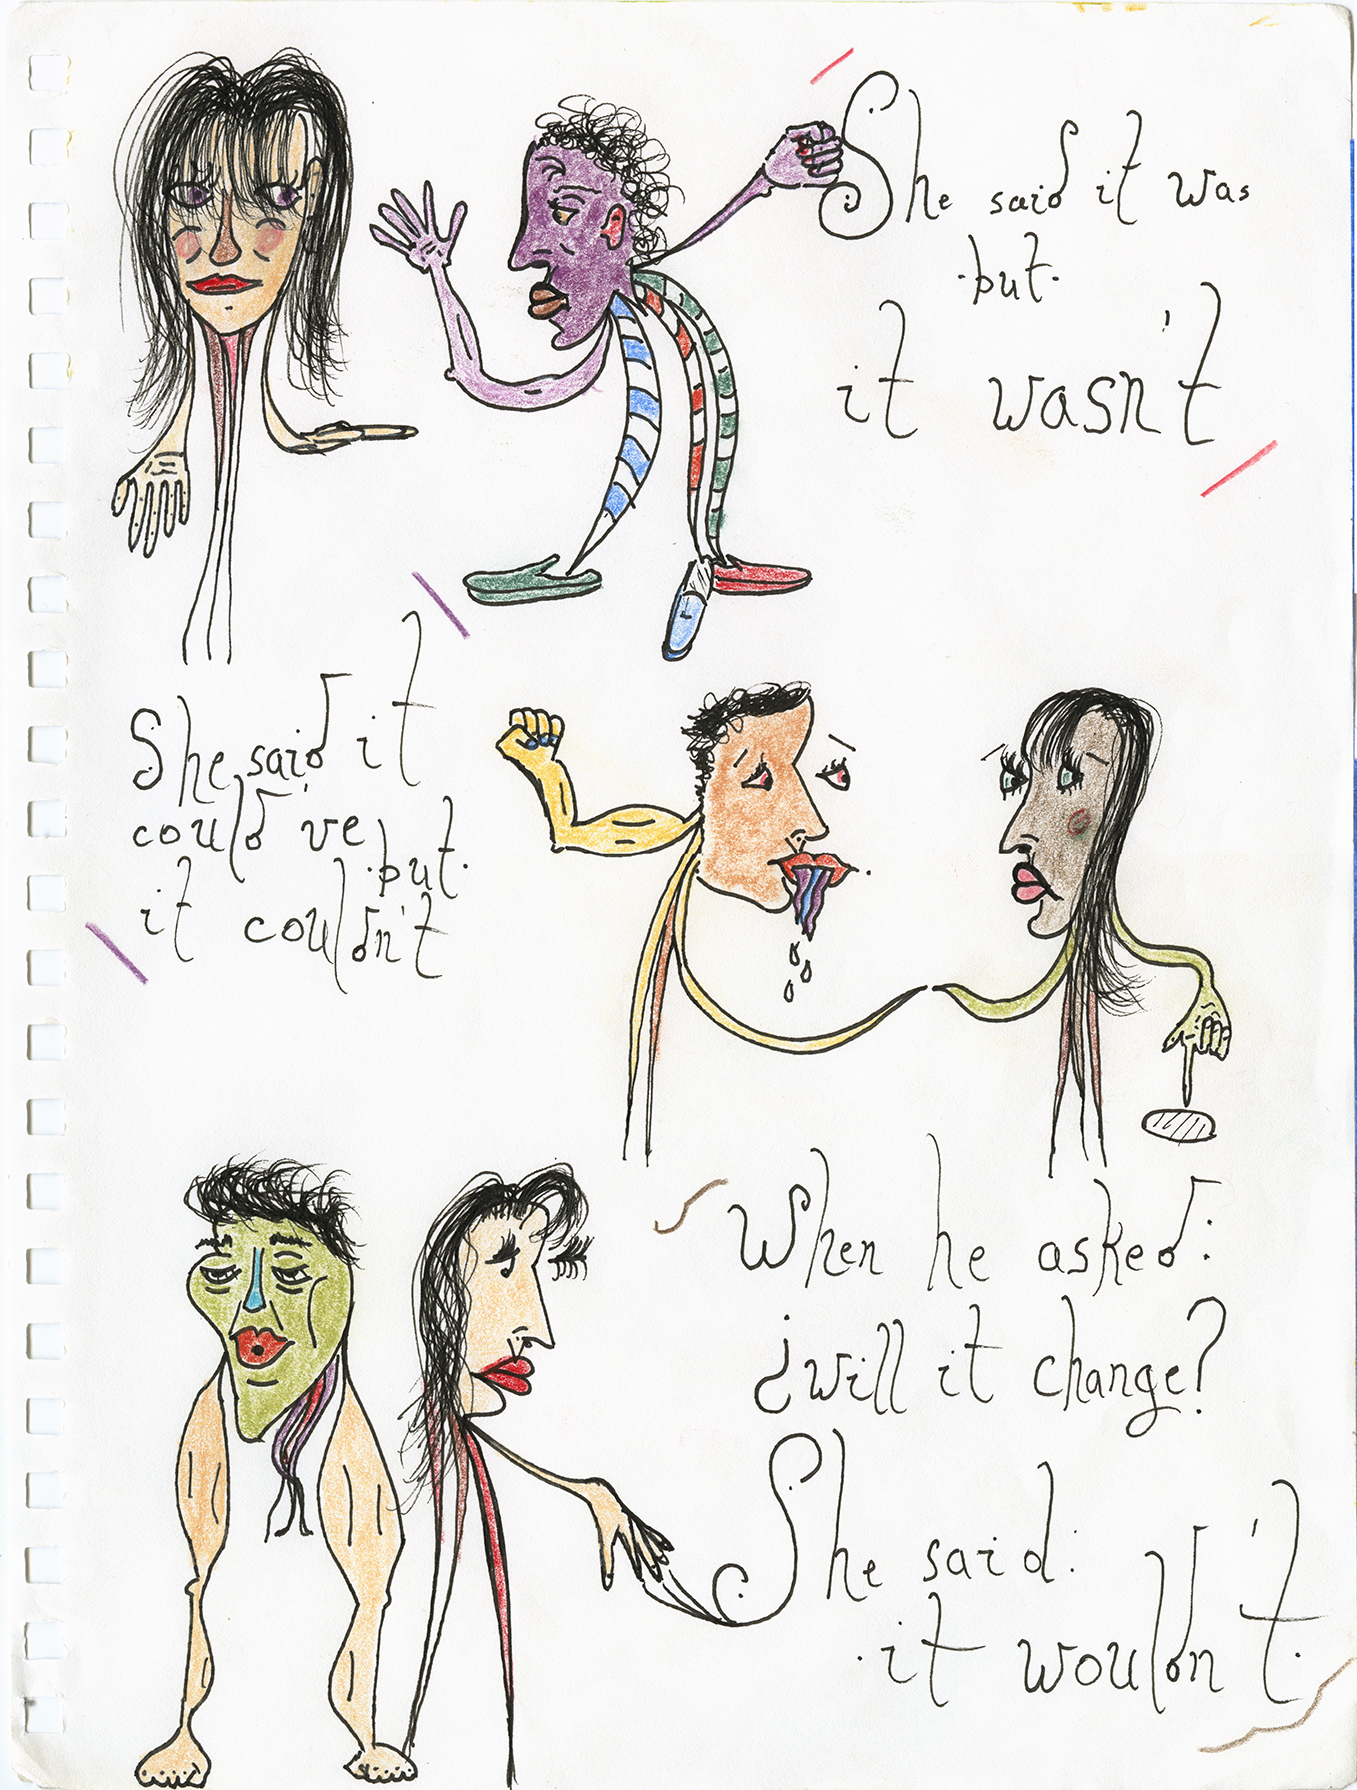 She said it was
·but·
it wasn't
She said it
could've
·but·
it couldn't
When he asked:
¿will it change?
She said:
·it wouldn't·